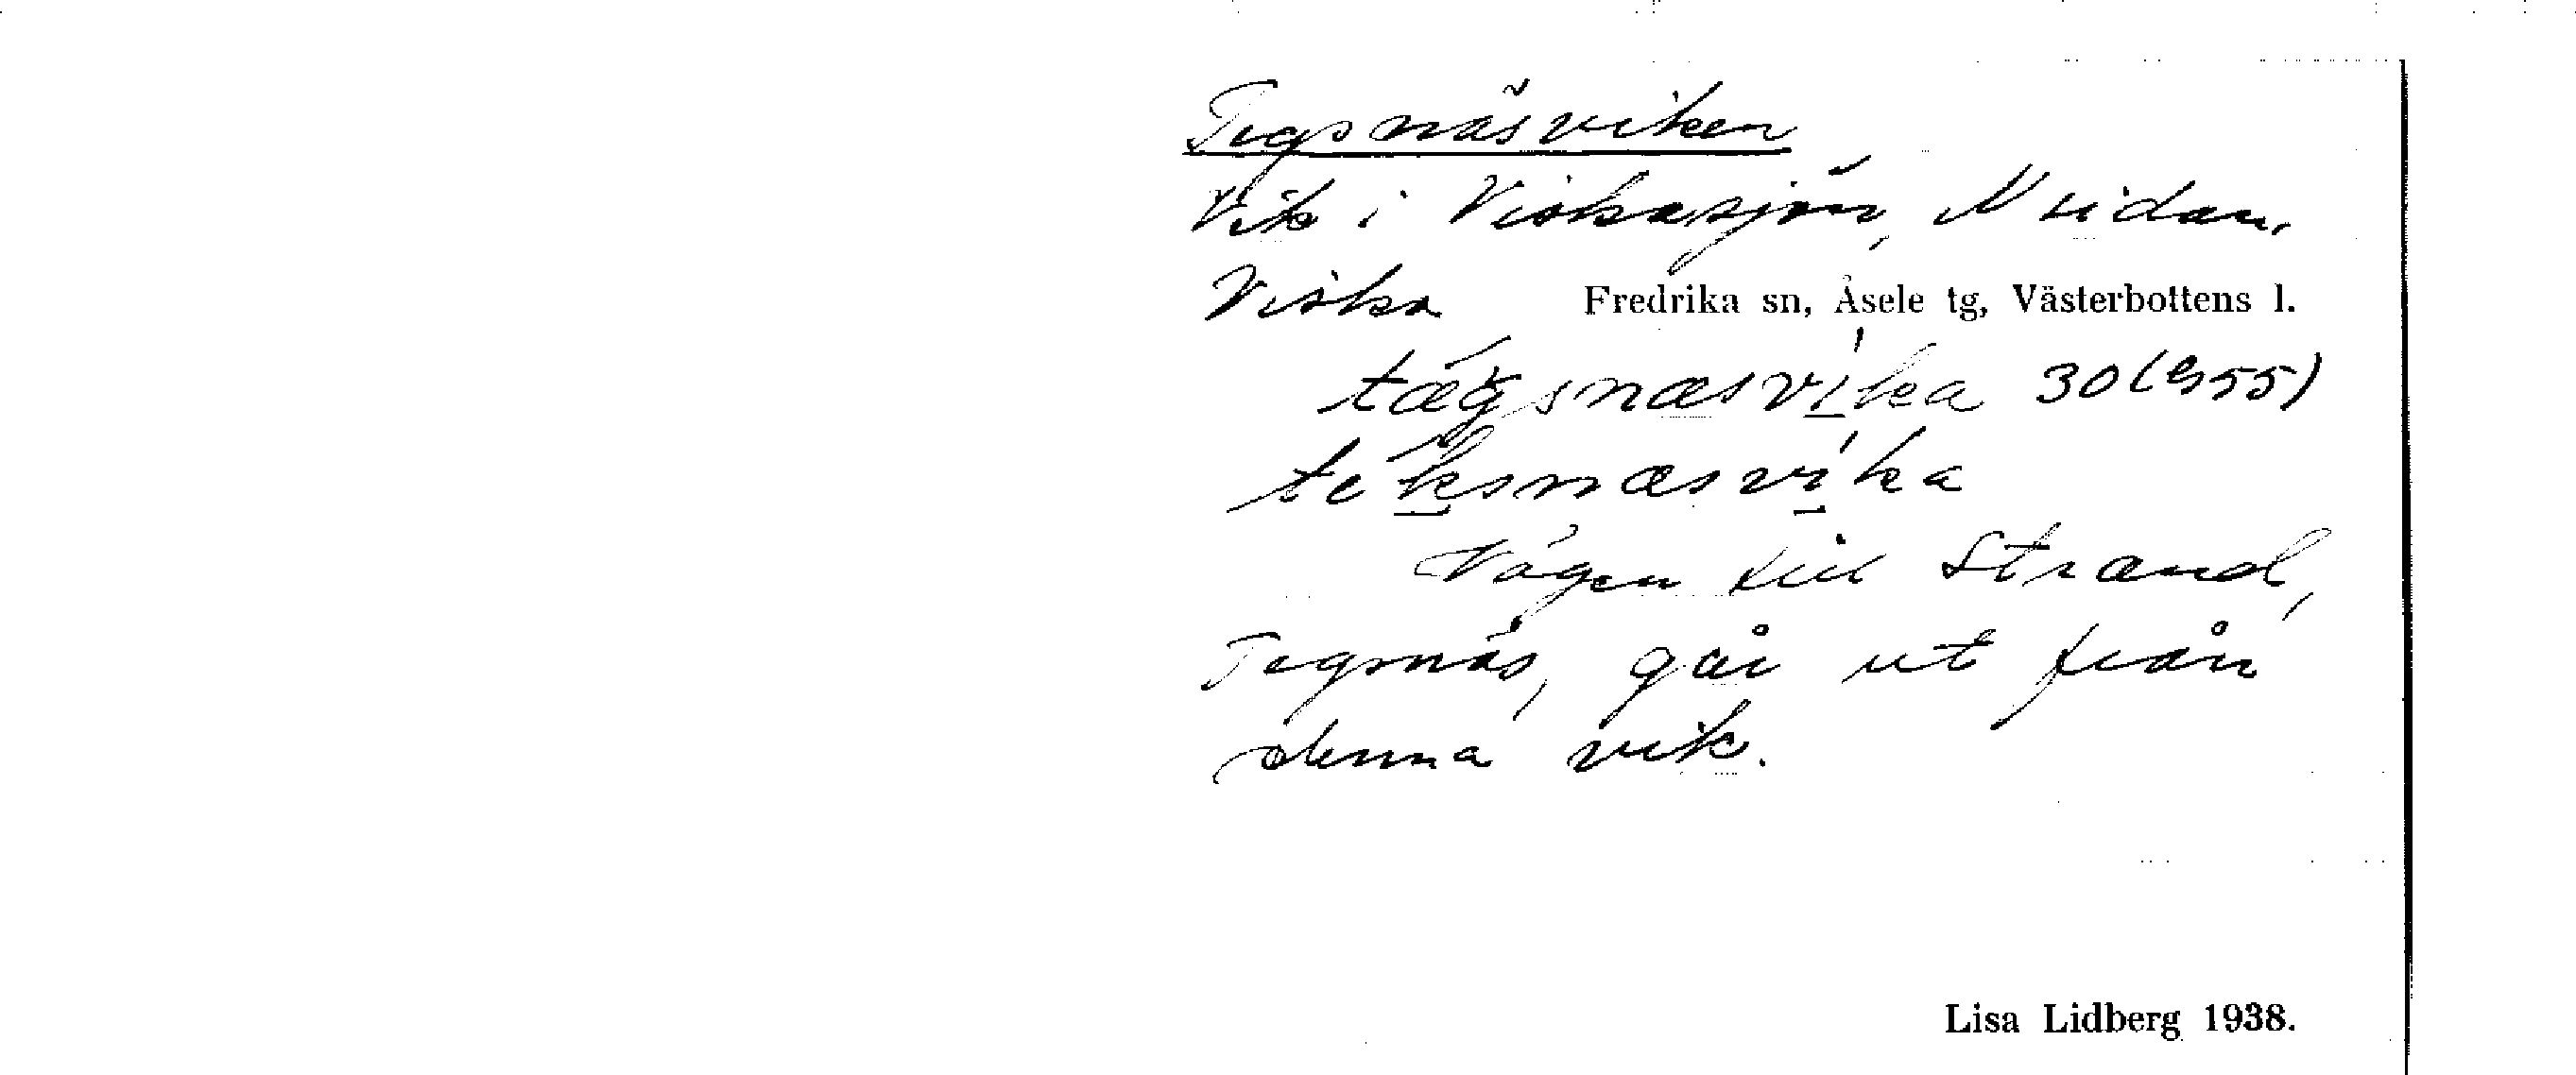 Tegsnäsviken
Vik i Viskasjön, N sidan.
Viska Fredrika sn, Åsele tg, Västerbottens l.
tægsnæsvika 30 (G55)
teksnæsvika
Vägen till Strand,
Tegsnäs, går ut från
denna vik.
Lisa Lidberg 1938.